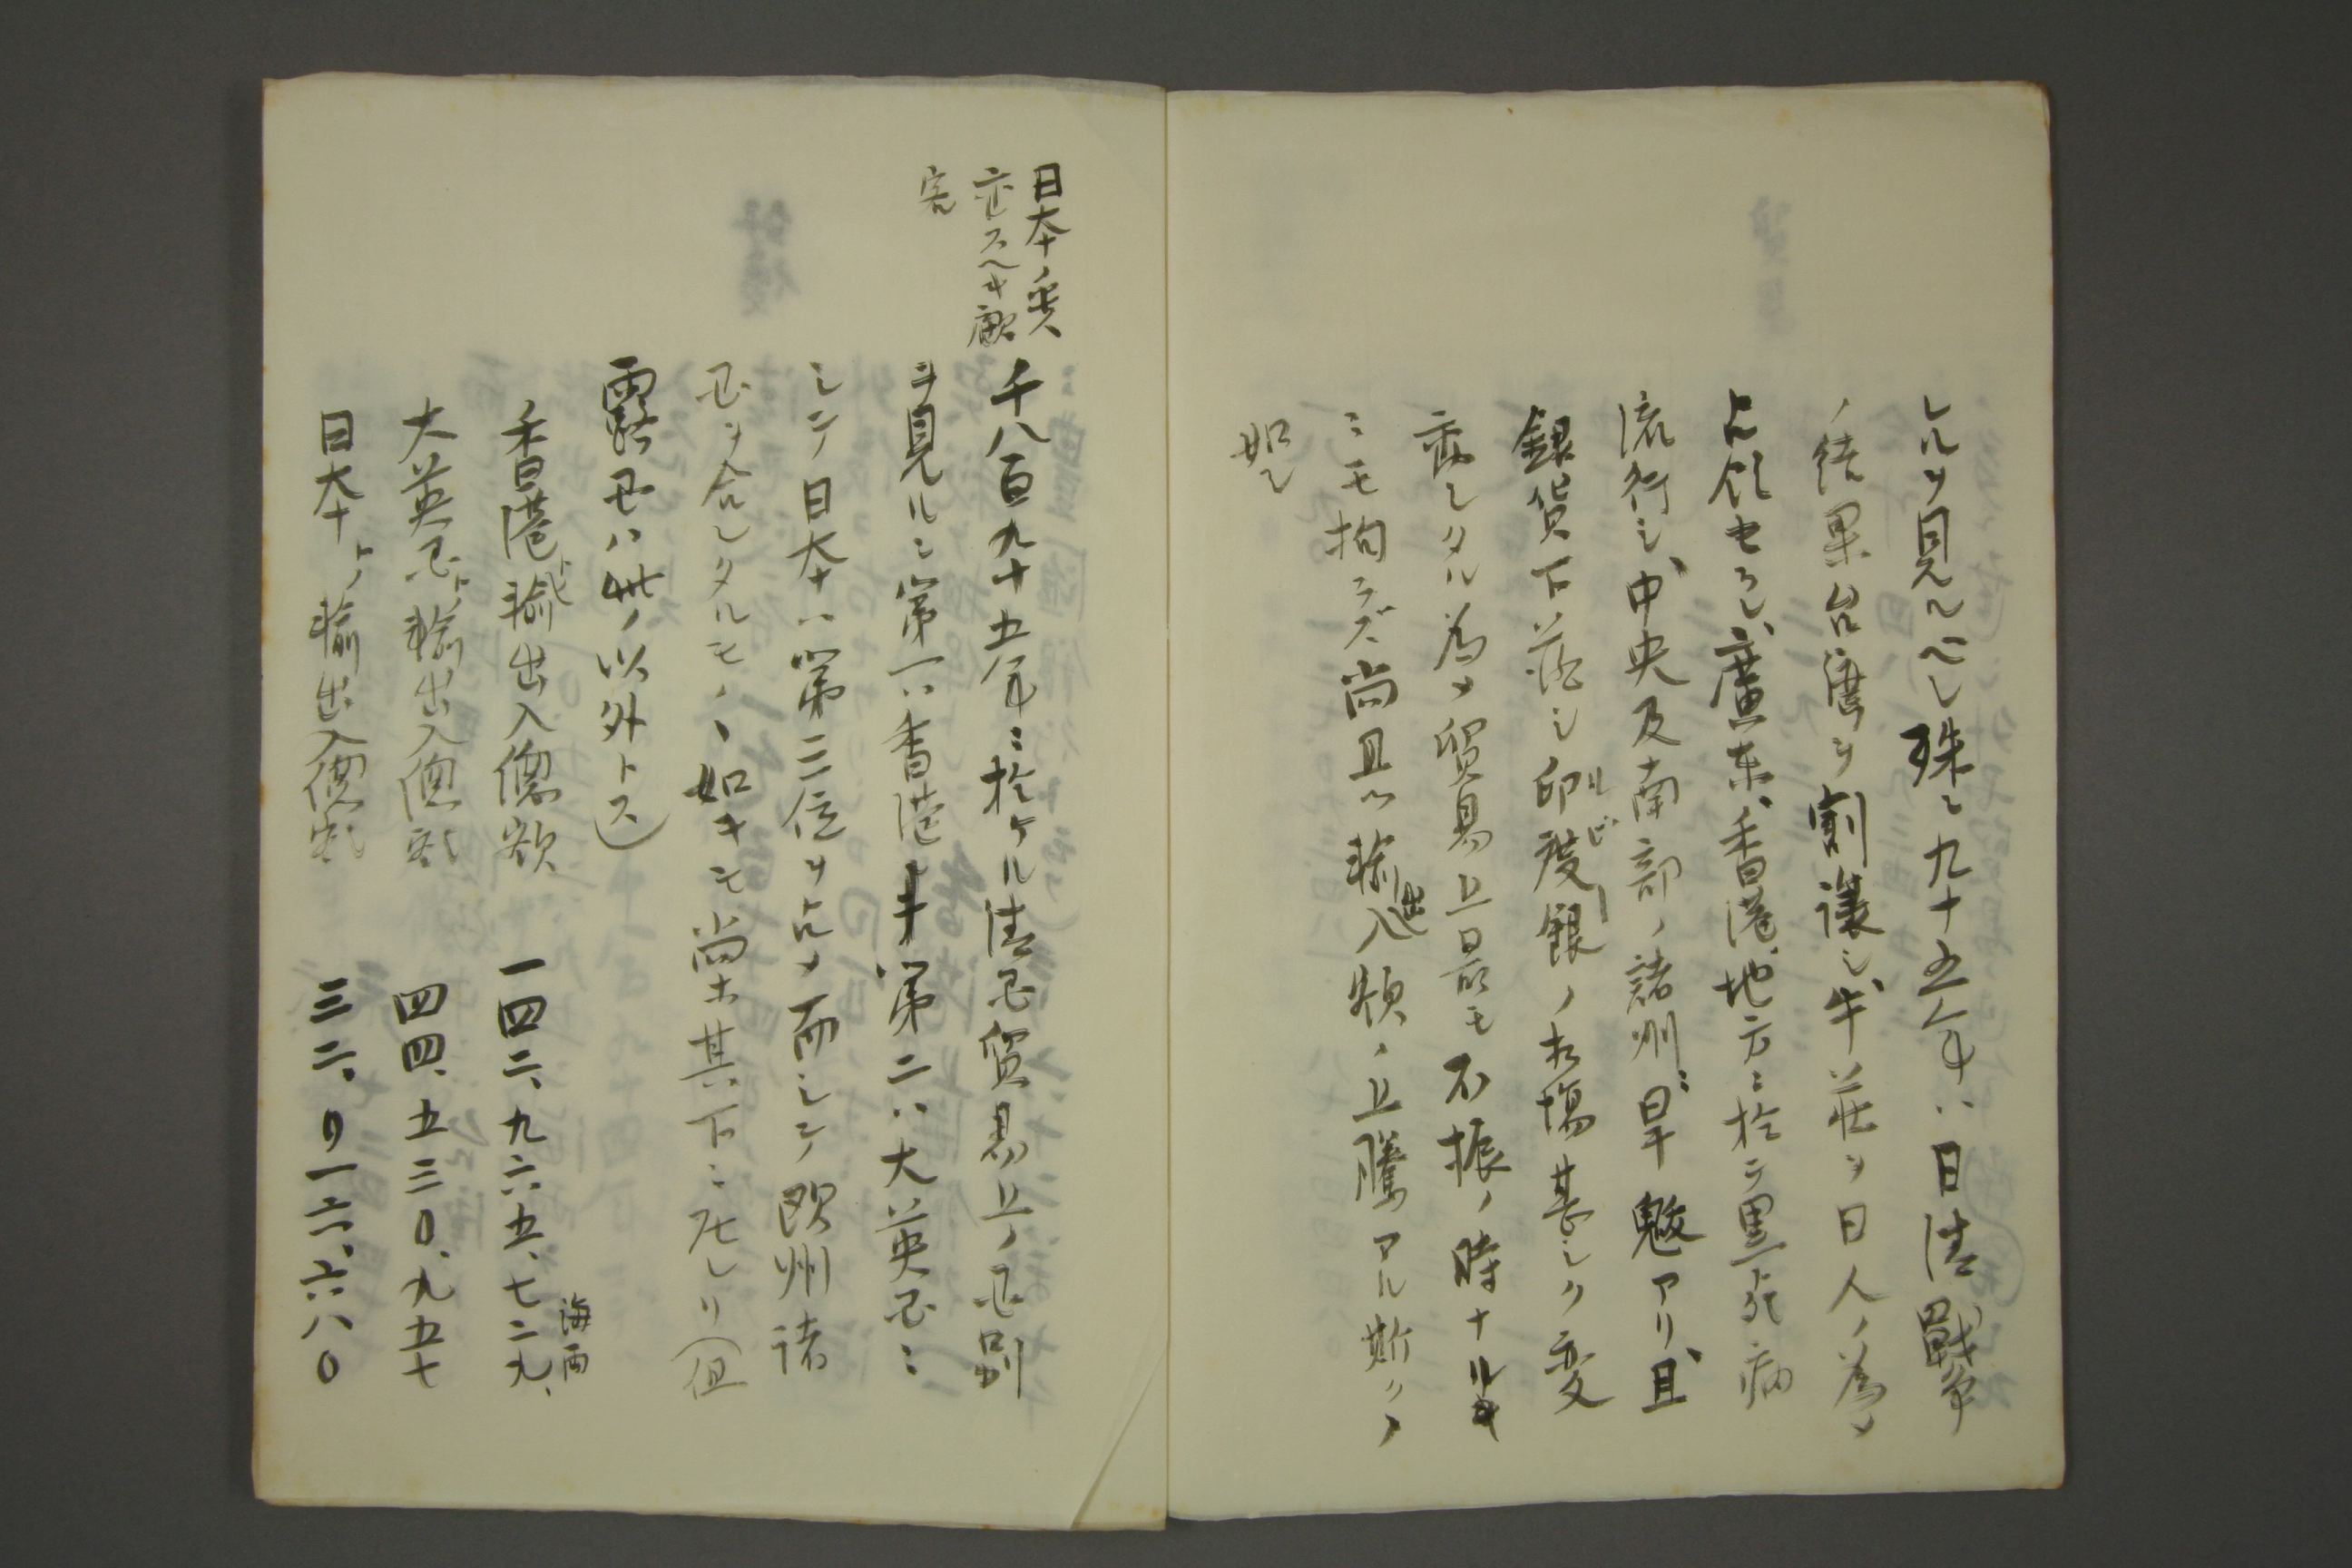 レルヲ見ルベシ殊ニ九十五年ハ日清戦争
ノ結果台湾ヲ割譲シ、牛荘ヲ日人ノ為ニ
占領セラレ、廣東、香港、地方ニ於テ黒死病
流行シ、中央及南部ノ諸州ニ旱魃アリ、且
銀貨下落シ印度銀ノ相場甚シク変
ルピー
シタル為メ貿易上最モ不振ノ時ナルキ
ニモ拘ラズ尚且ツ輸出入額ノ上騰アル斯クノ
如シ
日本ノ
スヘキ敵
千八百九十五年ニ於ケル清国貿易上ノ国別
ヲ見ルニ第一ハ香港ニ第二ハ大英国ニ
シテ日本ハ第三位ヲ占メ而シテ欧州諸
国ヲ合シタルモノヽ如キモ尚ホ其下ニ在レリ(但
露国ハ此ノ以外トス)
香港トノ輸出入価額 一四二、九六五、七二九、
海両
大英国トノ輸出入価額 四四、五三〇、九五七
日本トノ輸出入価額 三二、〇一六、六八〇